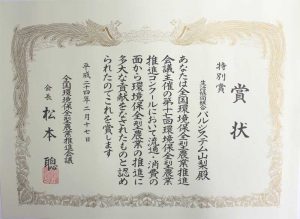 賞状
特別賞
生活協同組合
パルシステム山梨殿
あなたは全国環境保全型農業推進
会議主催の第十七回環境保全型農業
推進コンクールにおいて流通・消費の
面から環境保全型農業の推進に
多大な貢献をなされたものと認め
られたのでこれを賞します
平成二十四年二月十七日
全国環境保全型農業推進会議
会長 松本 聰